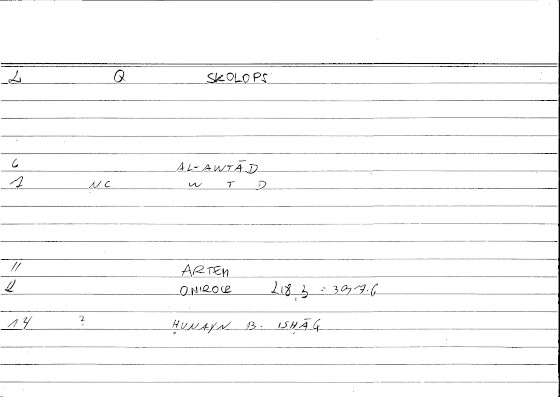 2 Q SKOLOPS
6 AL-AWTĀD
7 NC W T D
11 ARTEM
12 ONIROCR 218,3 : 397.6
14 ? ḤUNAYN B. ISḤĀQ